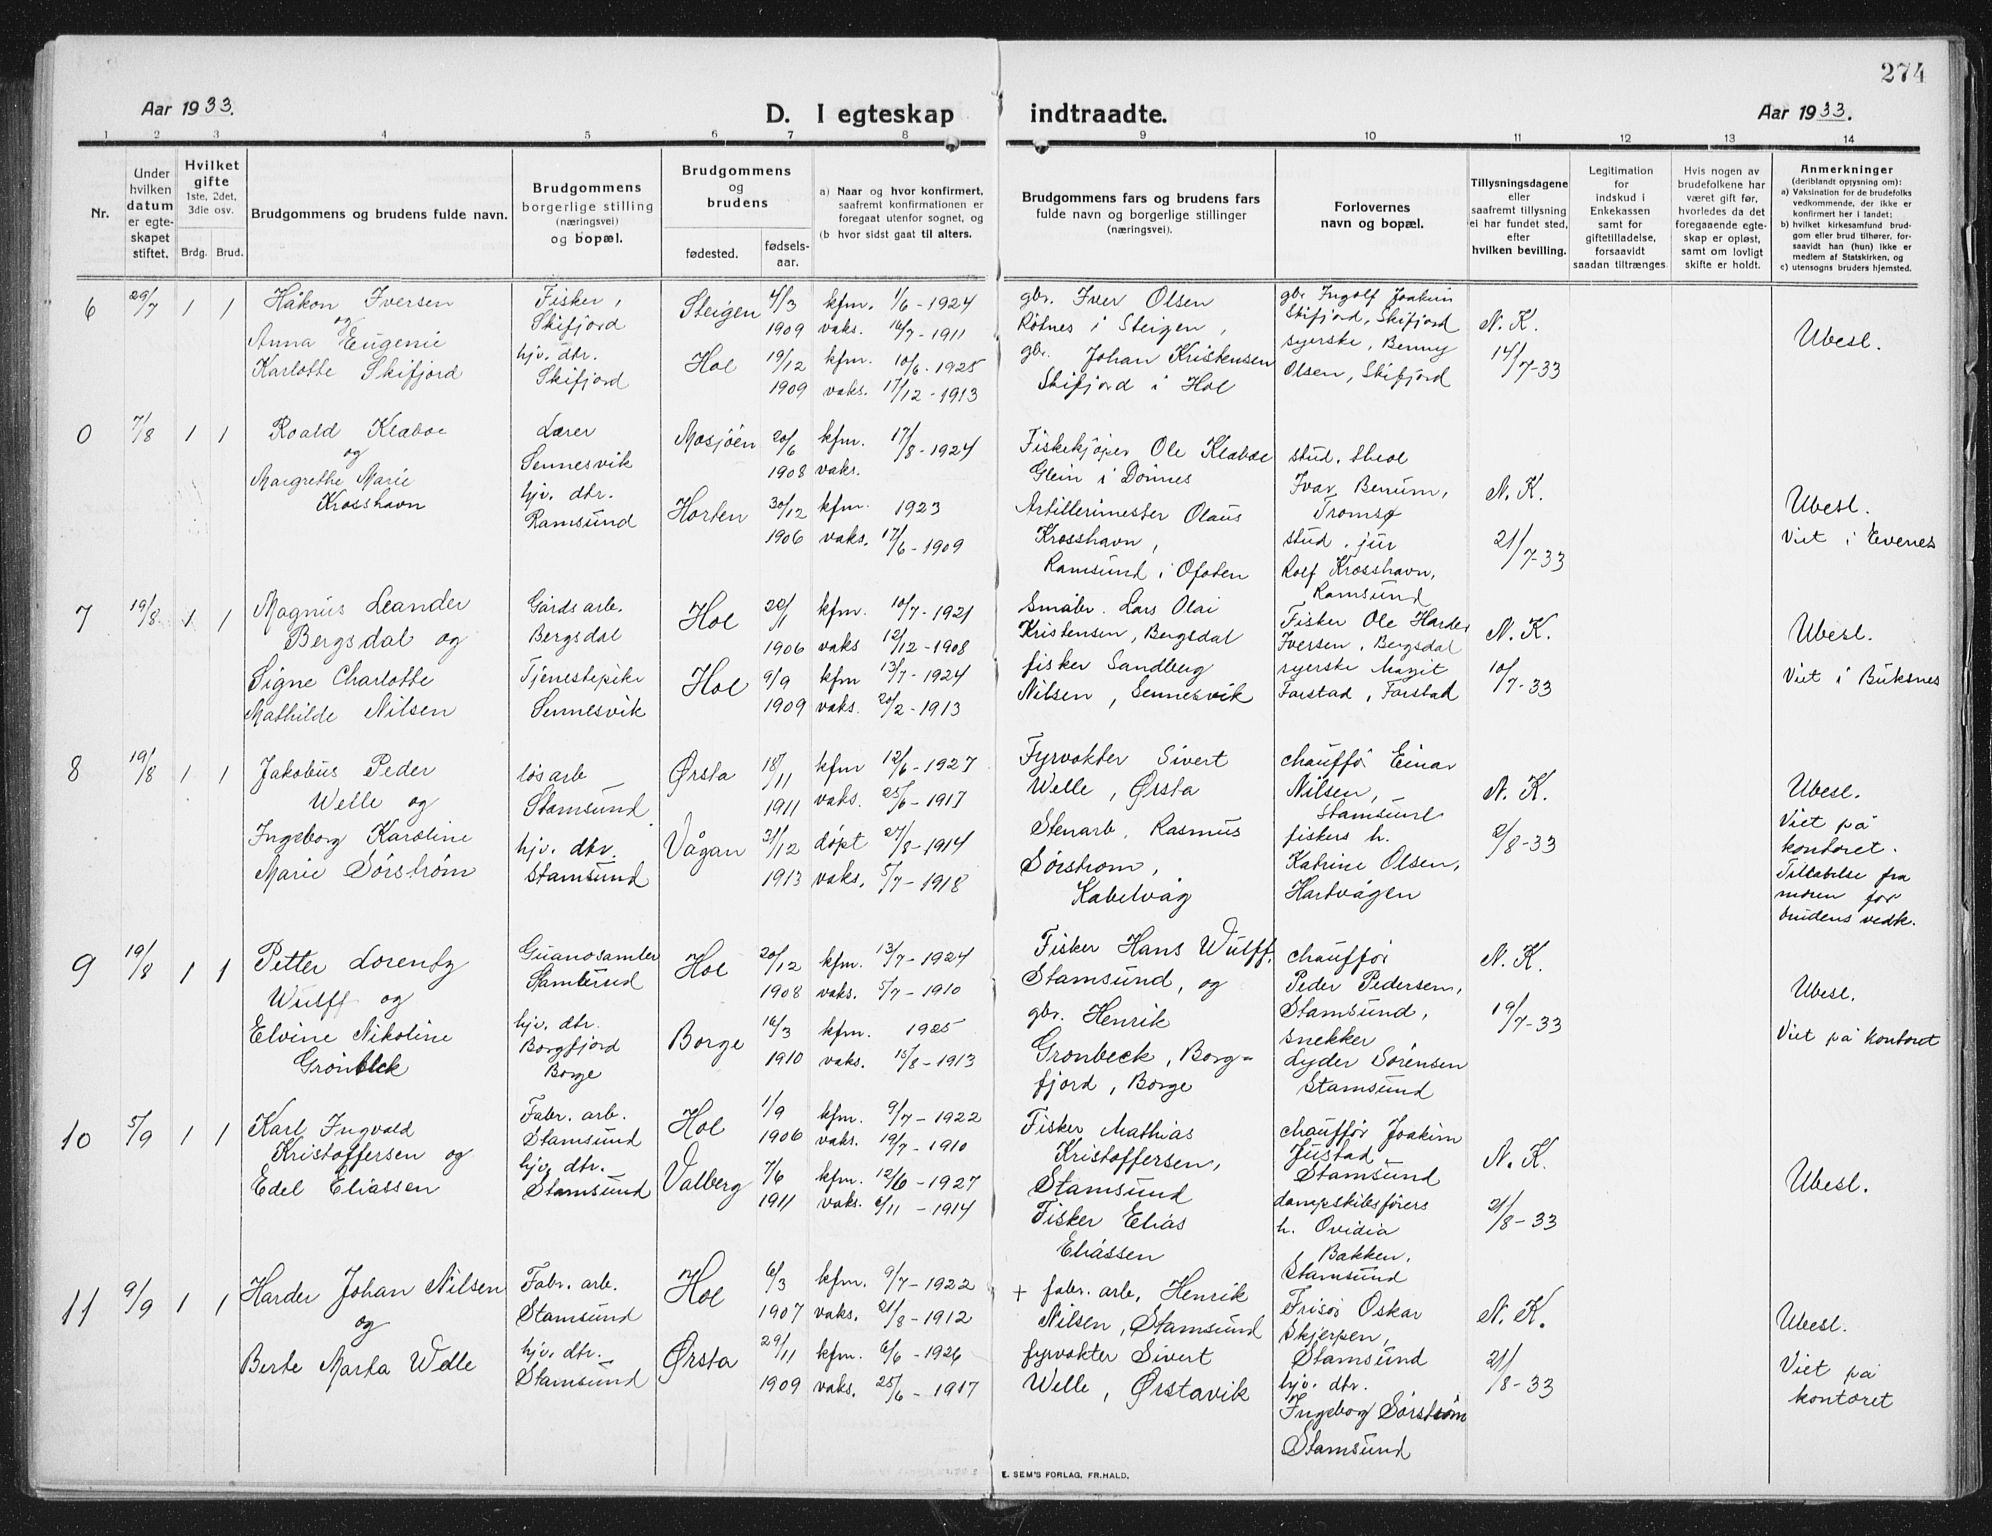 274
Aar 1933.
D. I egteskap indtraadte.
Aar 1933.
1 2 3 4 5 6 7 8 9 10 11 12 13 14
Nr.
Under hvilken datum er egteskapet stiftet.
Hvilket gifte
1ste, 2det, 3die osv.
Brdg. Brud.
Brudgommens og brudens fulde navn.
Brudgommens borgerlige stilling (næringsvei) og bopæl.
Brudgommens og brudens
fødested. fødselsaar.
a) Naar og hvor konfirmert, saafremt konfirmationen er foregaat utenfor sognet, og
(b hvor sidst gaat til alters.
Brudgommens fars og brudens fars fulde navn og borgerlige stillinger (næringsvei).
Forlovernes navn og bopæl.
Tillysningsdagene eller saafremt tillysning ei har fundet sted, efter hvilken bevilling.
Legitimation for indskud i Enkekassen samt for giftetilladelse, forsaavidt saadan tiltrænges
Hvis nogen av brudefolkene har været gift før, hvorledes da det foregaaende egteskap er opløst, samt om lovligt skifte er holdt.
Anmerkninger
(deriblandt opjysning om):
a) Vaksination for de brudefolks vedkommende, der ikke er konfirmert her i landet;
b) hvilket kirkesamfund brudgom eller brud tilhører, forsaavidt han (hun) ikke er medlem af Statskirken, og
c) utensogns bruders hjemsted.
6 29/7 1 1
Håkon Iversen
og
Anna Eugenie
Karlotte Skifjord
Fisker,
Skifjord
hjv. dtr.
Skifjord
Steigen 4/3 1909
Hol 19/12 1909
kfm. 1/6 - 1924
vaks. 16/7 - 1911
kfm. 10/6 - 1925
vaks. 17/12 - 1913
gbr. Iver Olsen
Rötnes i Steigen,
gbr. Johan Kristensen
Skifjord i Hol
gbr Ingolf Joakim
Skifjord, Skifjord
syerske, Benny
Olsen, Skifjord
N. K.
14/7-33
Ubesl.
0 7/8 1 1
Roald Klaboe
og
Margrethe Marie
Krosshavn
Lærer
Sennesvik
hjv. dtr.
Ramsund
Mosjöen 20/6 1908
Horten 30/12 1906
kfm. 17/8 - 1924
vaks.
kfm. 1923
vaks. 17/6 - 1909
Fiskekjöper Ole Klaboe
Glein i Dönnes
Artillerimester Olaus
Krosshavn,
Ramsund i Ofoten
stud. theol
Ivar Benum,
Tromsø
stud. jur
Rolf Krosshavn,
Ramsund
N. K.
21/7-33
Ubesl.
Viet i Evenes
7 19/8 1 1
Magnus Leander
Bergsdal og
Signe Charlotte
Mathilde Nilsen
Gårdsarb.
Bergsdal
Tjenestepike
Sennesvik
Hol 20/11 1906
Hol 9/9 1909
kfm. 10/7 - 1921
vaks 12/12 - 1908
kfm 13/7 - 1924
vaks. 20/2 - 1913
Småbr. Lars Olai
Kristensen, Bergsdal
fisker Sandberg
Nilsen, Sennesvik
Fisker Ole Harder
Iversen, Bergsdal
syerske Magit
Farstad, Farstad
N. K.
10/7-33
Ubesl.
Viet i Buksnes
8 19/8 1 1
Jakobus Peder
Welle og
Ingeborg Karoline
Marie Sørstrøm
løsarb
Stamsund
hjv. dtr.
Stamsund
Ørsta 18/11 1911
Vågan 31/12 1913
kfm 12/6 - 1927
vaks. 25/6 - 1917
döpt 27/8 - 1914
vaks. 5/7 - 1918
Fyrvokter Sivert
Welle, Ørsta
Stenarb. Rasmus
Sörstrom,
Kabelvåg
chaufför Einar
Nilsen,
Stamsund
fiskers h.
Katrine Olsen,
Hartvågen
N. K.
2/8-33
Ubesl.
Viet på
kontoret.
Tillatelse fra
moren for
brudens vedk.
9 19/8 1 1
Petter Lorentz
Wulff og
Elvine Nikoline
Grönbeck
Guanosamler
Stamsund
hjv. dtr.
Borgfjord
Borge
Hol 20/12 1908
Borge 16/3 1910
kfm. 13/7 - 1924
vaks. 5/7 - 1910
kfm. 1925
vaks. 15/8 - 1913
Fisker Hans Wulff,
Stamsund, og
gbr. Henrik
Gronbeck, Borg-
fjord, Borge
chaufför
Peder Pedersen,
Stamsund,
snekker
Lyder Sörensen
Stamsund
N. K.
19/7-33
Ubesl.
Viet på kontoret
10 5/9 1 1
Karl Ingvald
Kristoffersen og
Edel Eliassen
Fabr. arb.
Stamsund
hjv. dtr.
Stamsund
Hol 1/9 1906
Valberg 7/6 1911
kfm. 9/7 - 1922
vaks. 19/7 - 1910
kfm. 12/6 - 1927
vaks. 6/11 - 1914
Fisker Mathias
Kristoffersen,
Stamsund
Fisker Elias
Eliassen
chaufför Joakim
Justad,
Stamsund
dampskibsförers
h. Ovidia
Bakken,
Stamsund
N. K.
21/8-33
Ubesl.
11 9/9 1 1
Harder Johan Nilsen
og
Berte Marta Welle
Fabr. arb.
Stamsund
hjv. dtr.
Stamsund
Hol 6/3 1907
Ørsta 29/11 1909
kfm. 9/7 - 1922
vaks. 21/8 - 1912
kfm. 6/6 - 1926
vaks. 25/6 - 1917
+ fabr. arb. Henrik
Nilsen, Stamsund
fyrvokter Sivert
Welle, Ørstavik
Frisör Oskar
Skjerpen,
Stamsund
hjv. dtr.
Ingebog Sörström
Stamsund
N. K.
21/8-33
Ubesl.
Viet på
kontoret
E. SEM'S FORLAG, FR.HALD.